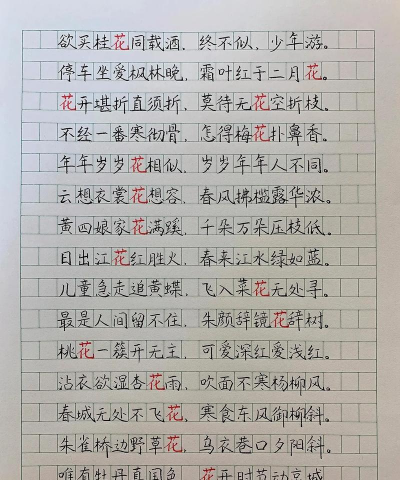 欲买桂花同载酒，终不似、少年游。
停车坐爱枫林晚，霜叶红于二月花。
花开堪折直须折，莫待无花空折枝。
不经一番寒彻骨，怎得梅花扑鼻香。
年年岁岁花相似，岁岁年年人不同。
云想衣裳花想容，春风拂槛露华浓。
黄四娘家花满蹊，千朵万朵压枝低。
日出江花红胜火，春来江水绿如蓝。
儿童急走追黄蝶，飞入菜花无处寻。
最是人间留不住，朱颜辞镜花辞树。
桃花一簇开无主，可爱深红爱浅红。
沾衣欲湿杏花雨，吹面不寒杨柳风。
春城无处不飞花，寒食东风御柳斜。
朱雀桥边野草花，乌衣巷口夕阳斜。
唯有牡丹真国色，花开时节动京城